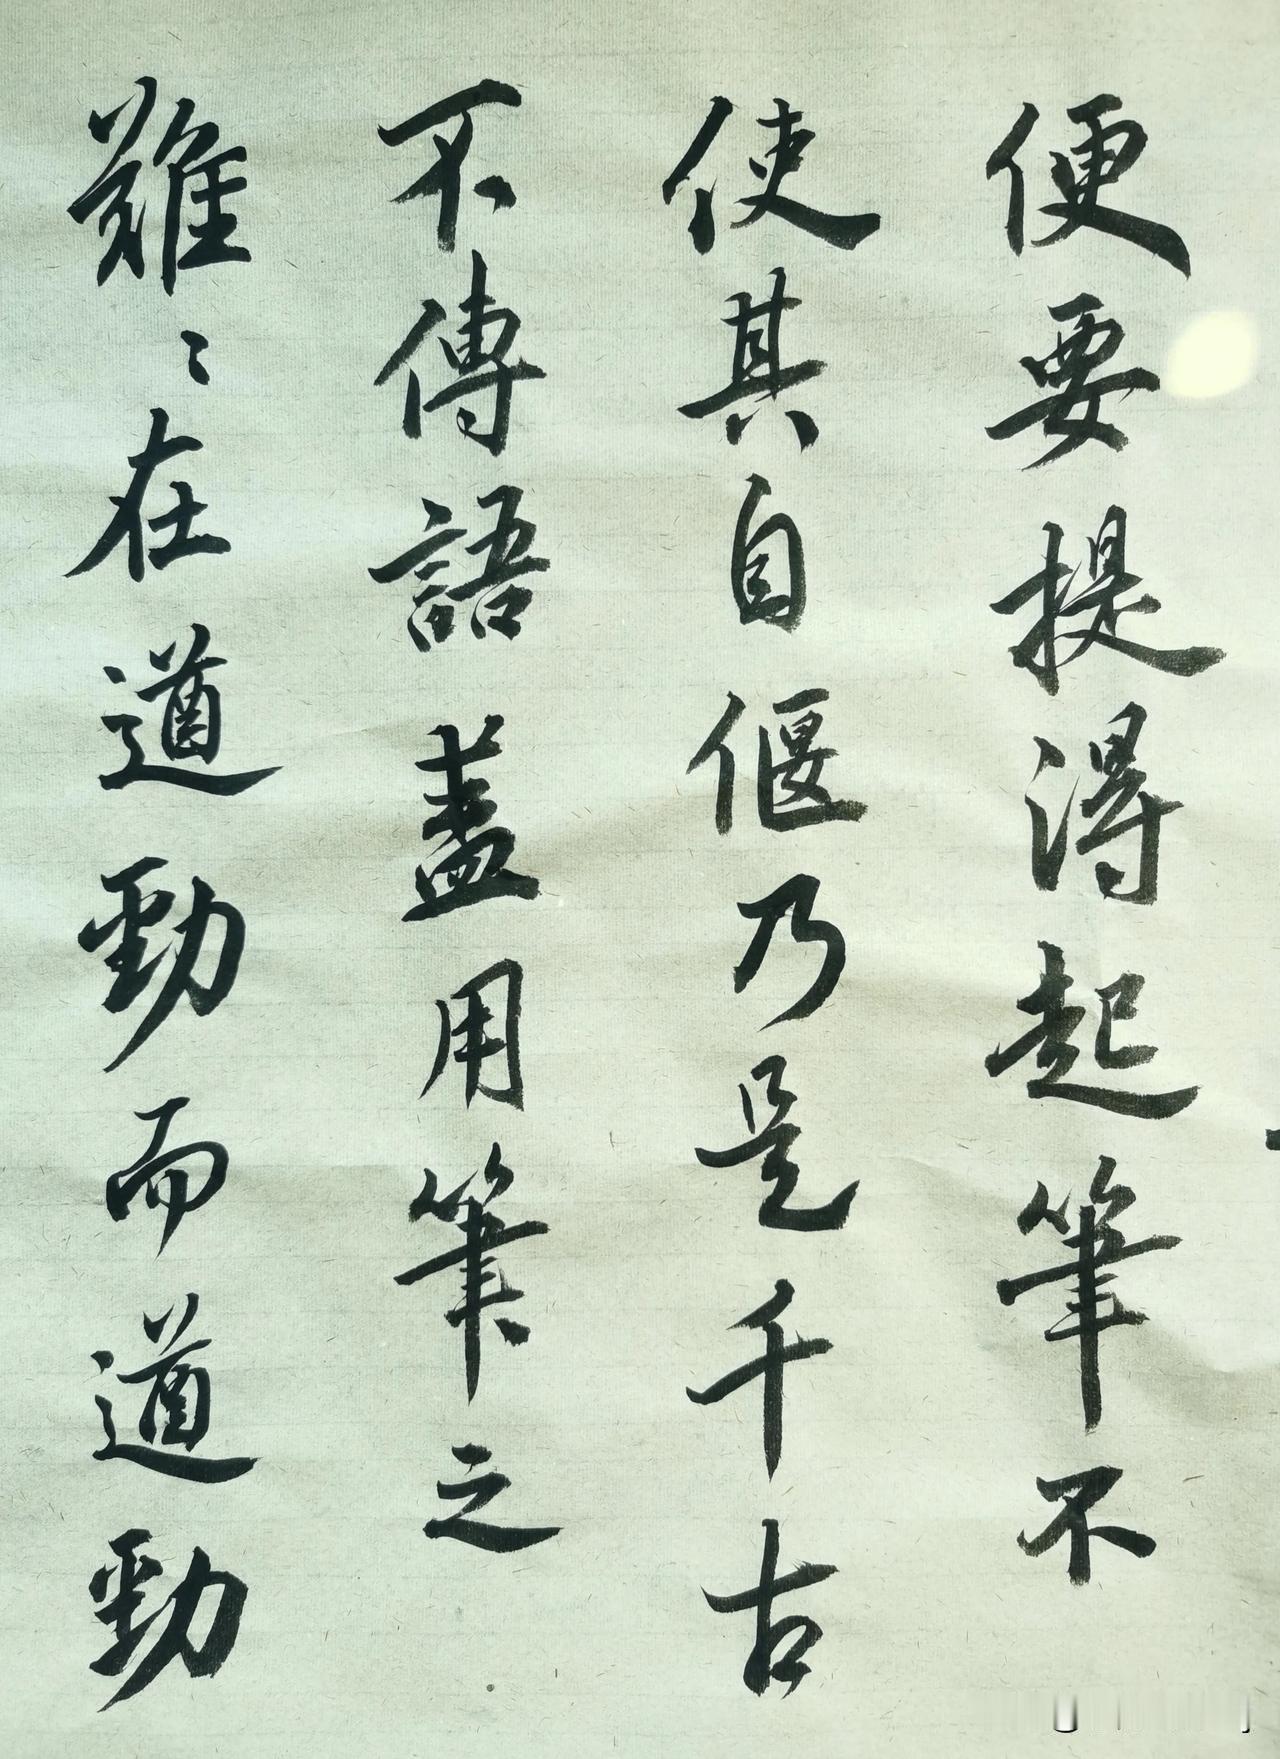 便要提得起筆不
使其自偃乃是千古
不傳語蓋用筆之
難〻在遒勁而遒勁